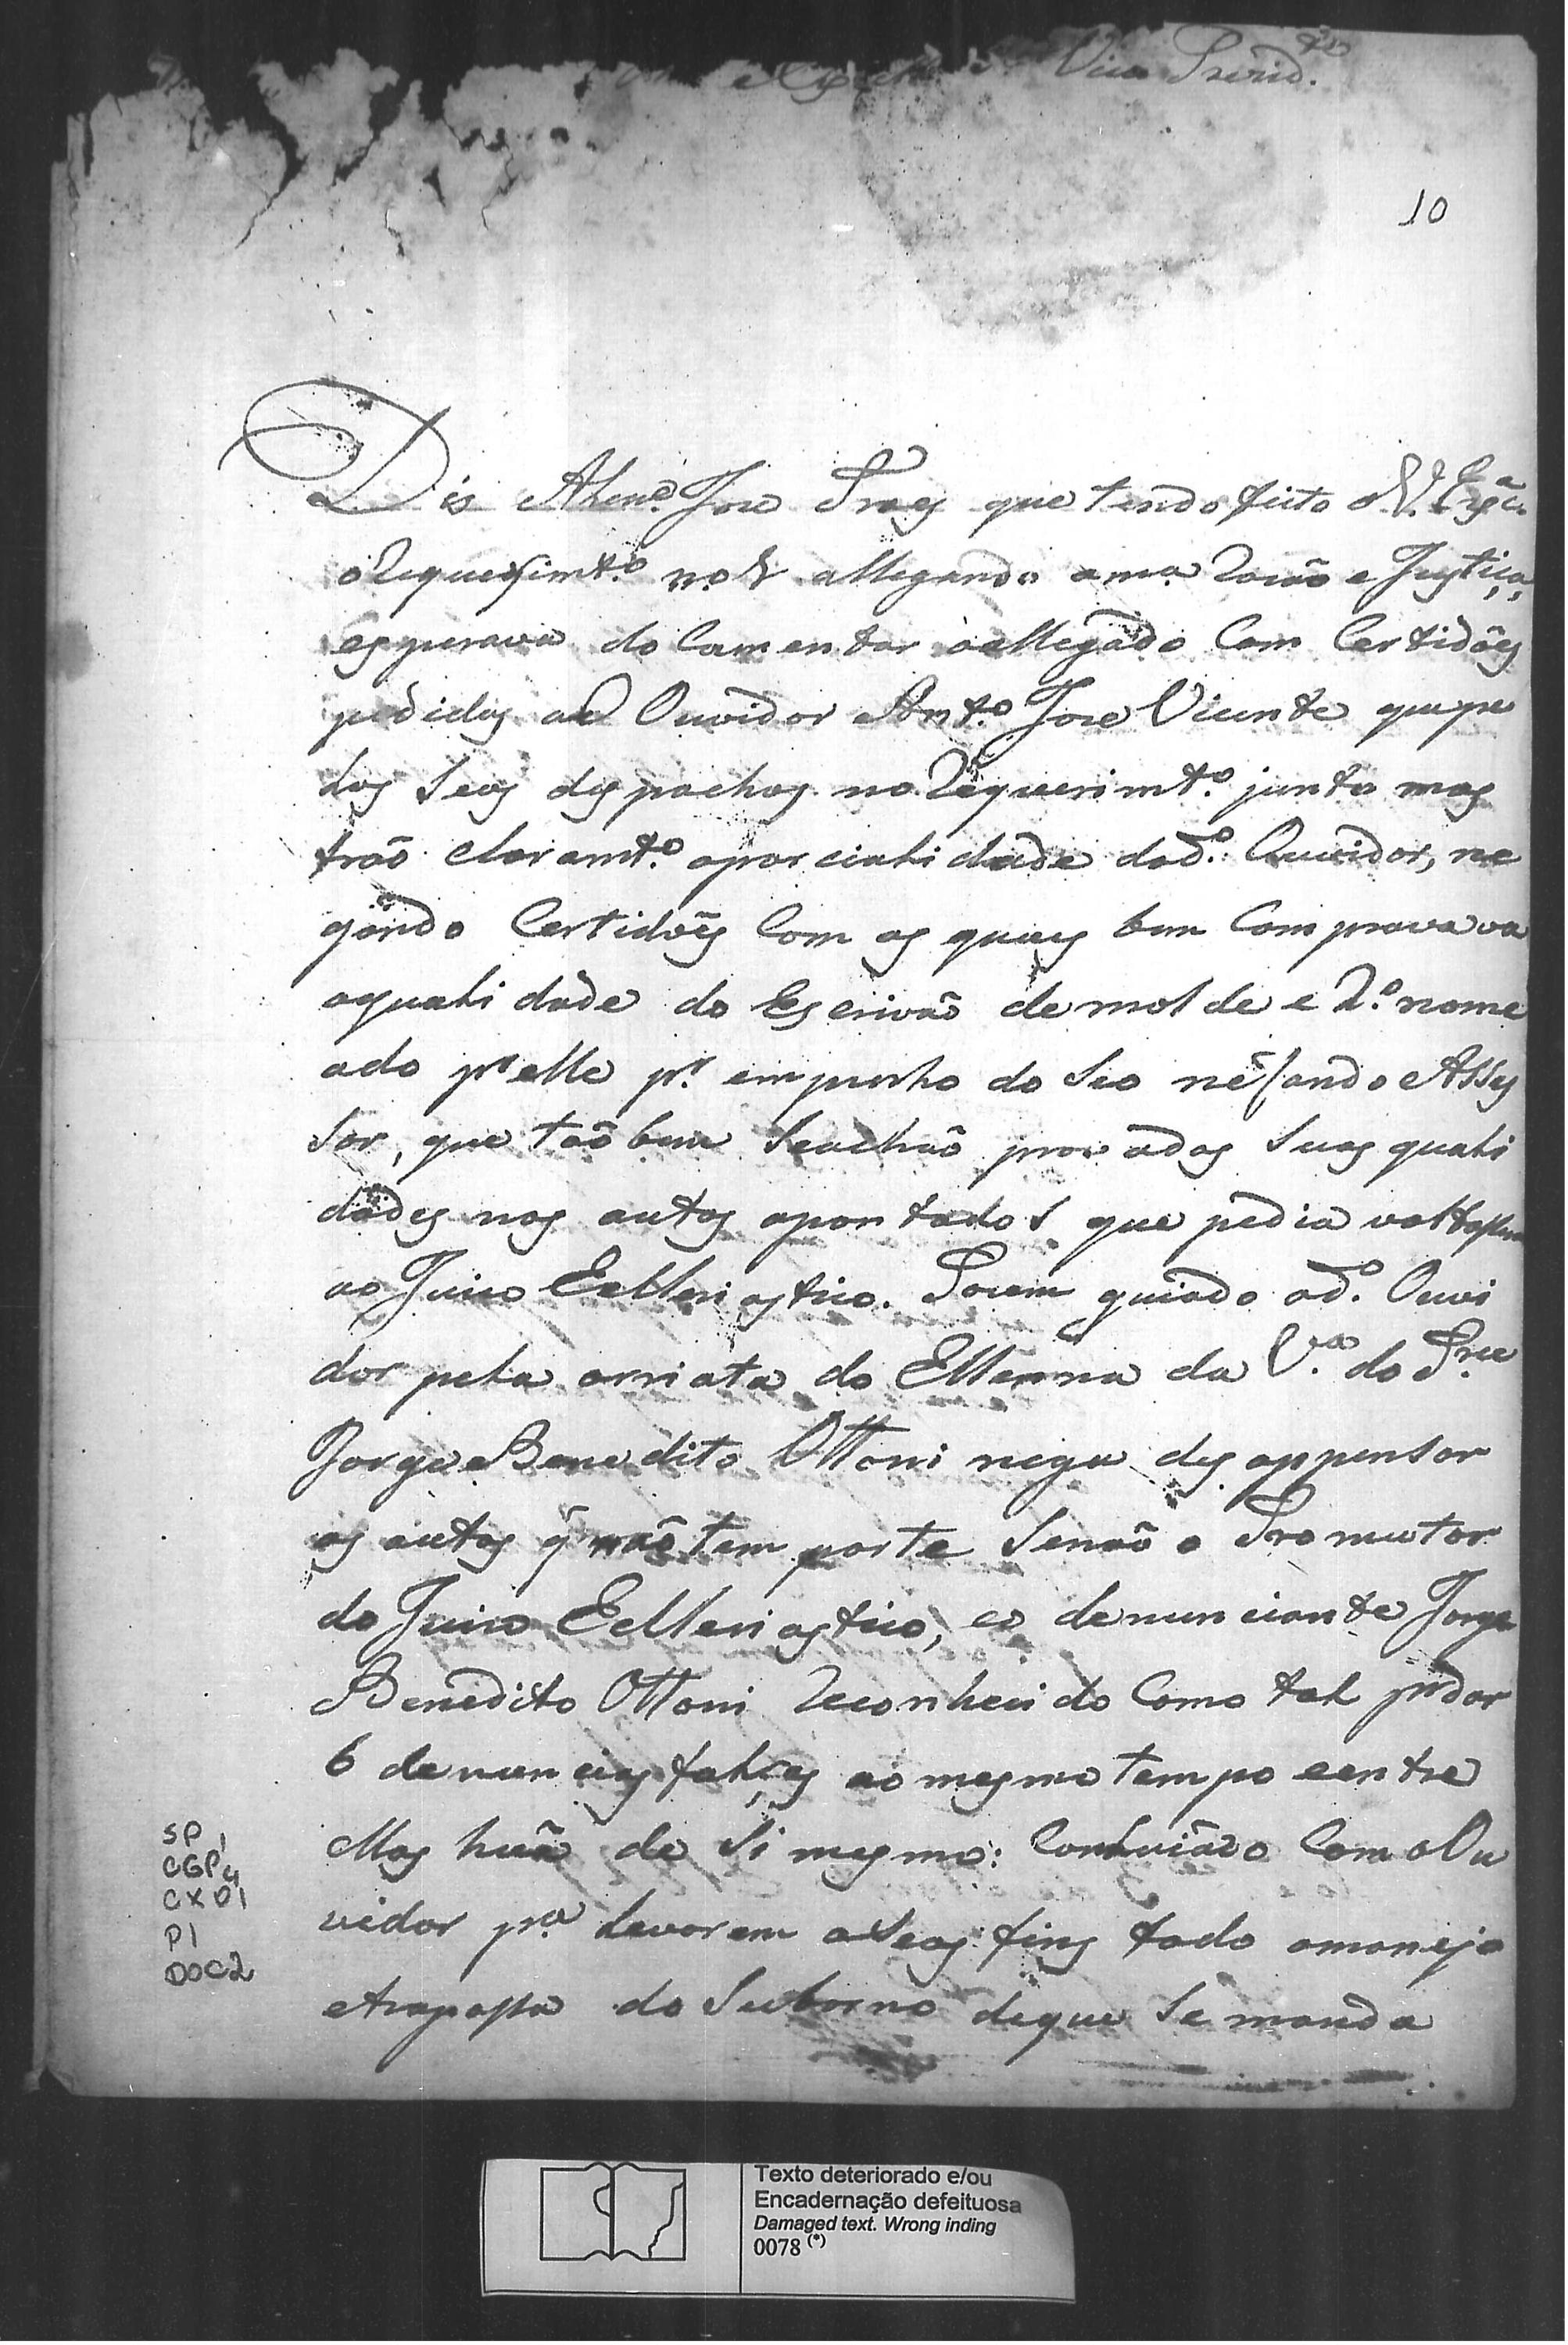 Vice Prezid.te
10
Dis Jose que tendo feito a V. Exc.a
o Requerimt.o n.o allegando a m.a Razão e Justiça,
esperava do Cumentar o allegado Com Certidões
pedidas ao Ouvidor Ant.o Jose Vicente que pe
los Seos despachos no Requerimt.o junto mos
trão claramt.e a parcialidade do d.o Ouvidor, ne
gando Certidões Com as quaes bem Comprovava
a qualidade do Escrivão de molde e nome
ado p.r elle p.r empenho do Seo nefando Asses
sor, que tão bem Se achão provadas Suas quali
dades nos autos apontados que pedia
ao Juizo Ecclesiastico. Porem guiado o d.o Ouvi
dor pela arriata do da V.a do Pr.e
Jorge Benedito Ottoni nega desappensar
os autos q̃ não tem parte Senão o Promutor
do Juizo Ecclesiastico, e o denunciante Jorge
Benedito Ottoni Reconhecido Como tal p.r dar
6 denuncias falças ao mesmo tempo e entre
ellas huã de Si mesmo: Conluiado Com o Ou
vidor p.a levarem a Seos fins todo o manejo
e trapassa do Suborno de que Se manda
SP 1
CGP 4
CX 01
P1
DOC 2
Texto deteriorado e/ou
Encadernação defeituosa
Damaged text. Wrong inding
0078 (*)